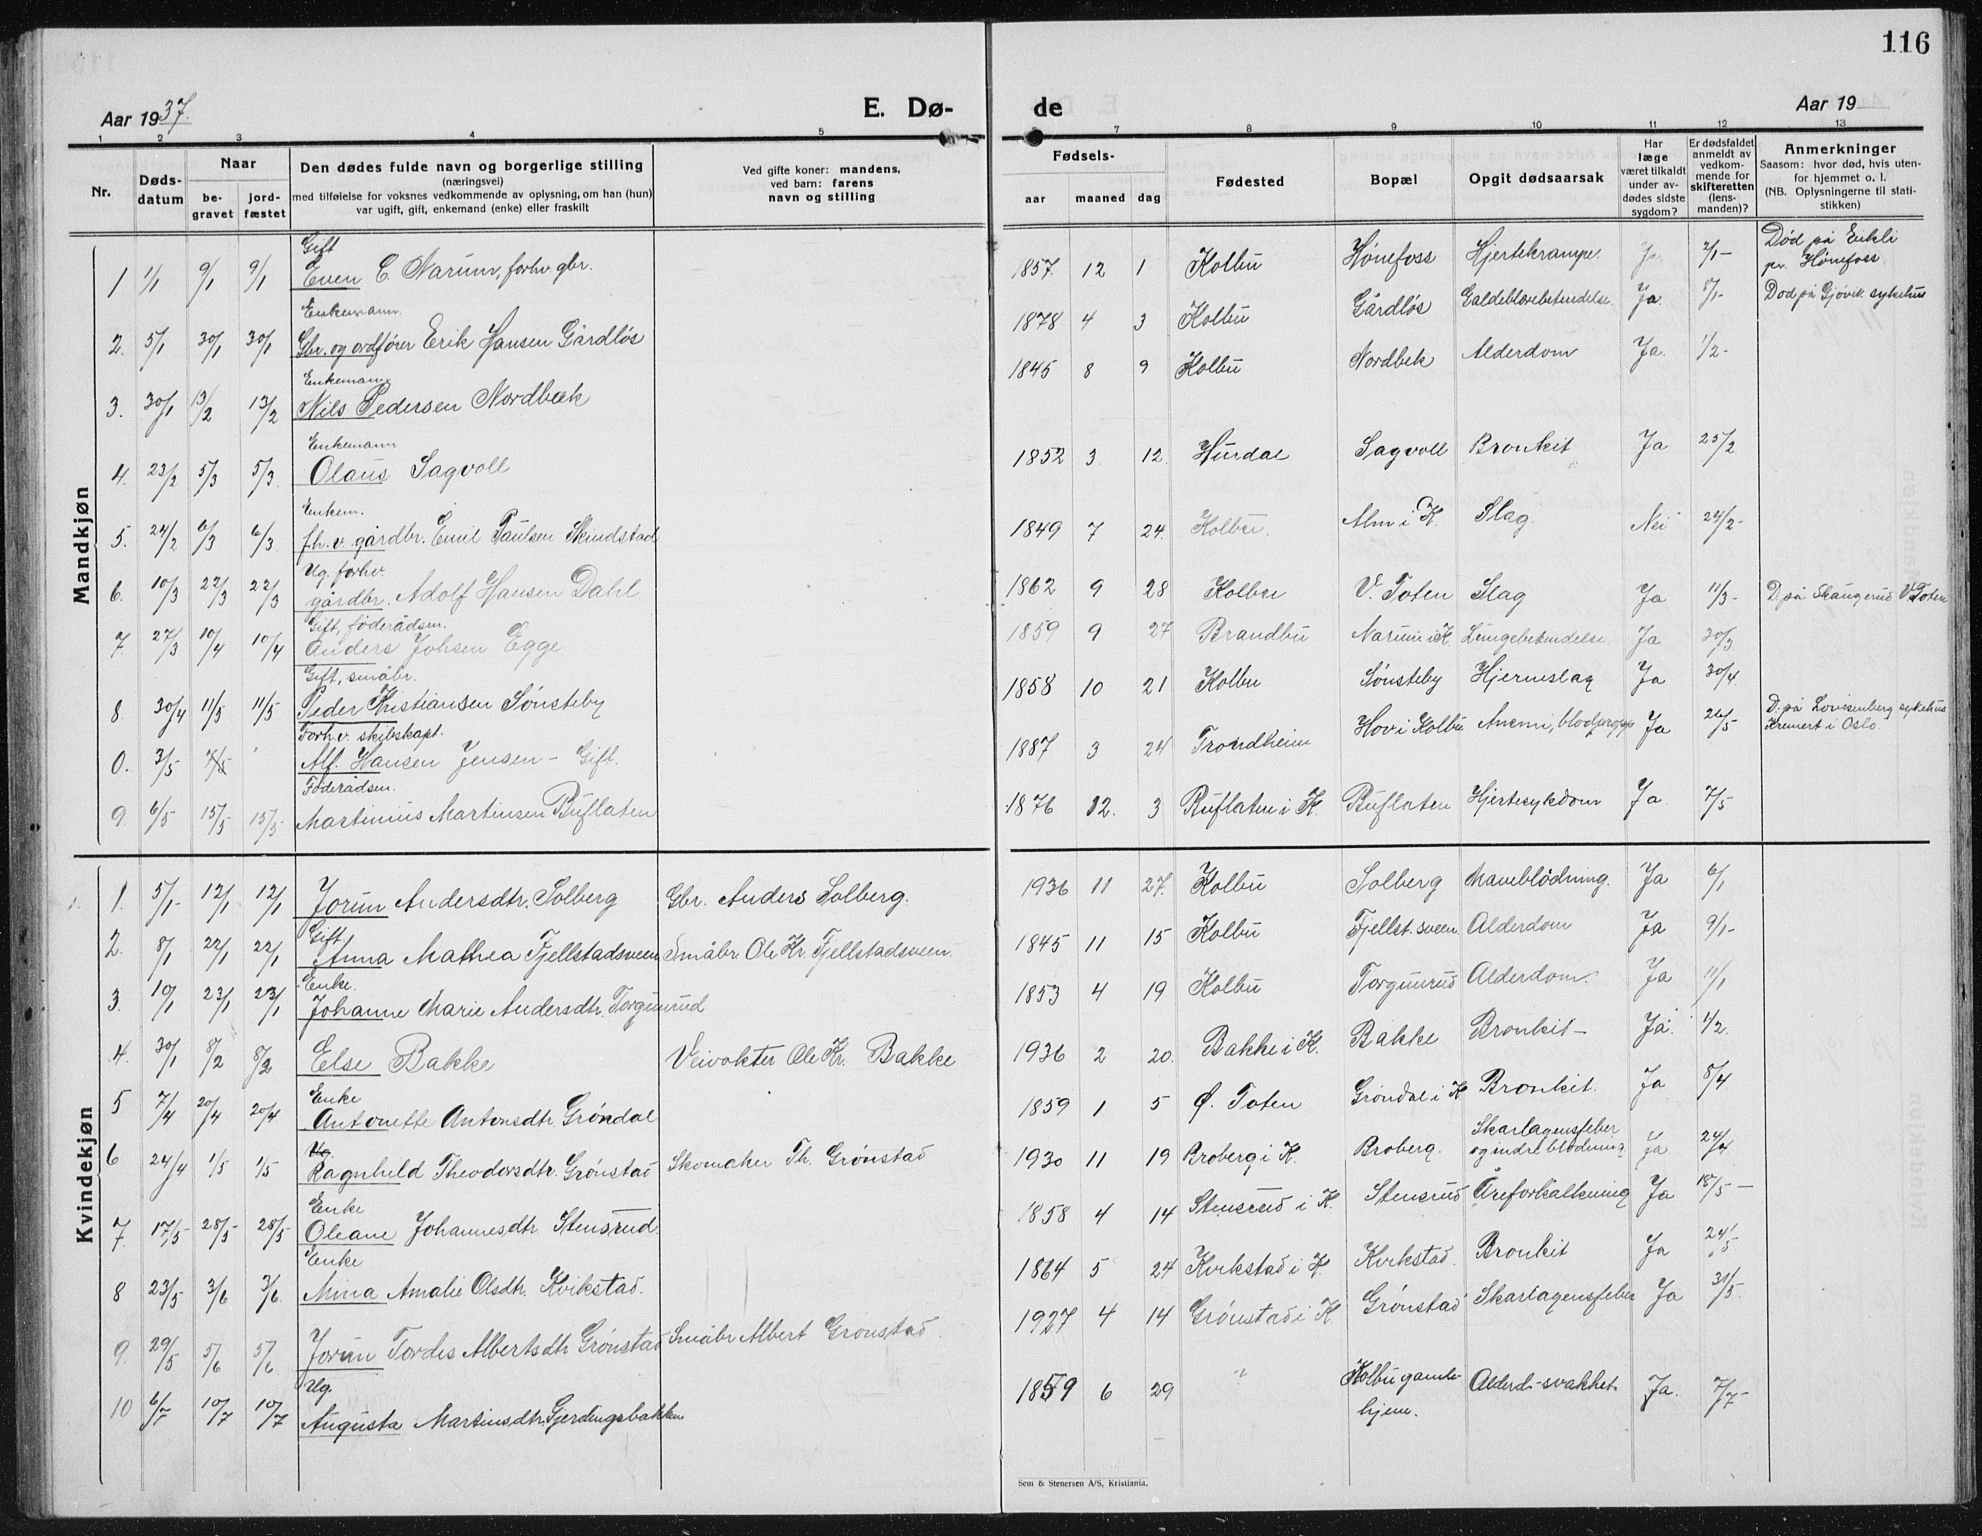 116
Aar 1937.
E. Dø-
de
Aar 19
1 2 3 4 5 7 8 9 10 11 12 13
Nr.
Døds-
datum
Naar
be-
gravet
jord-
fæstet
Den dødes fulde navn og borgerlige stilling
(næringsvei)
med tilføielse for voksnes vedkommende av oplysning, om han (hun)
var ugift, gift, enkemand (enke) eller fraskilt
Ved gifte koner: mandens,
ved barn: farens
navn og stilling
Fødsels-
aar maaned dag
Fødested
Bopæl
Opgit dødsaarsak
Har
læge
været tilkaldt
under av-
dødes sidste
sygdom?
Er dødsfaldet
anmeldt av
vedkom-
mende for
skifteretten
(lens-
manden)?
Anmerkninger
Saasom: hvor død, hvis uten-
for hjemmet o. l.
(NB. Oplysningerne til stati-
stikken)
Mandkjøn
Gift
1 1/1 9/1 9/1 Even E. Narum, forhv. gbr. 1857. 12 1 Kolbu Hønefoss Hjertekrampe. Ja. 2/1- Død på Eikli
pr. Hønefoss
Enkemann.
2. 5/1 30/1 30/1 Gbr. og ordfører Erik Hansen Gårdløs 1878 4 3 Kolbu Gårdløs Galdeblærebetendelse. Ja. 8/1- Død på Gjøvik sykehus
Enkemann
3. 30/1 13/2 13/2 Nils Pedersen Nordbæk 1845 8 9 Kolbu Nordbek Alderdom Ja. 1/2-
Enkemann
4. 23/2 5/3 5/3 Olaus Sagvoll 1852 3 12. Hurdal Sagvoll Bronkit Ja 25/2
Enkem.
5. 24/2 6/3 6/3 fh. v. gårdbr. Emil Paulsen Skindstad 1849 7 24. Kolbu. Alm i K. Slag. Nei 24/2-
Ug. forhv.
6. 10/3 22/3 22/3 gårdbr. Adolf Hansen Dahl 1862 9 28 Kolbu V. Toten Slag Ja 11/3- D. på Skaugerud V. Toten
Gift, føderådsm.
7. 27/3 10/4 10/4 Anders Johsen Egge 1859 9 27 Brandbu Narum i K. Lungebetendelse. Ja 30/3
Gift, småbr.
8. 30/4 11/5 11/5 Peder Kristiansen Sønsteby 1858 10 21 Kolbu Sønsteby Hjerneslag Ja 30/4.
Forh. v. skibskapt.
0. 3/5 7/5 Alf. Hansen Jensen - Gift. 1887 3 24 Trondheim Hov i Kolbu Anemi, blodpropp Ja 26/5 D. på Lovisenberg sykehus
Kremert i Oslo
Føderådsm.
9. 6/5 15/5 15/5 Martinius Martinsen Buflaten 1876 12. 3 Buflaten i K. Buflaten Hjertesykdom Ja. 7/5
Kvindekjøn
1. 5/1- 12/1 12/1 Jorun Andersdtr. Solberg Gbr. Anders Solberg. 1936 11 27. Kolbu Solberg Maveblødning. Ja 6/1
Gift
2. 8/1 22/1 22/1 Anna Mathea Fjellstadsveen Småbr. Ole Kr. Fjellstadsveen. 1845 11 15 Kolbu Fjellst.sveen Alderdom Ja 9/1-
Enke.
3. 10/1 23/1 23/1 Johanne Marie Andersdtr. Torgunrud 1853 4 19 Kolbu Torgunrud Alderdom. Ja 11/1
4. 30/1 8/2 8/2 Else Bakke Veivokter Ole Kr. Bakke 1936 2 20. Bakke i K. Bakke Bronkit- Ja. 1/2.
Enke
5 7/4 20/4 20/4 Antonette Antonsdtr. Grøndal 1859 1 5 Ø. Toten Grøndal i K Bronkit. Ja 8/4
Ug.
6 24/4 1/5 1/5 Ragnhild Theodorsdtr. Grønstad Skomaker Th. Grønstad 1930 11 19 Broberg i K. Broberg. Skarlagensfeber
og indre blødning Ja 24/4
Enke
7. 17/5 28/5 28/5 Oleane Johannesdtr. Stensrud. 1858 4 14 Stensrud i K. Stensrud Åreforkalkning Ja 18/5 -
Enke
8 23/5 3/6 3/6. Mina Amalie Olsdtr. Kvikstad. 1864 5 24 Kvikstad i K. Kvikstad. Bronkit Ja 24/5.
9. 29/5 5/6 5/6 Jorun Tordis Albertsdtr Grønstad Småbr Albert Grønstad. 1927 4 14 Grønstad i K. Grønstad Skarlagensfeber Ja 31/5.
Ug.
10 6/7 10/7 10/7 Augusta Martinsdtr. Gjerdingsbakken 1859 6 29 ? Kolbu gamle-
hjem. Alderd.-svakhet Ja. 7/7-
Sem & Stenersen A/S, Kristiania.